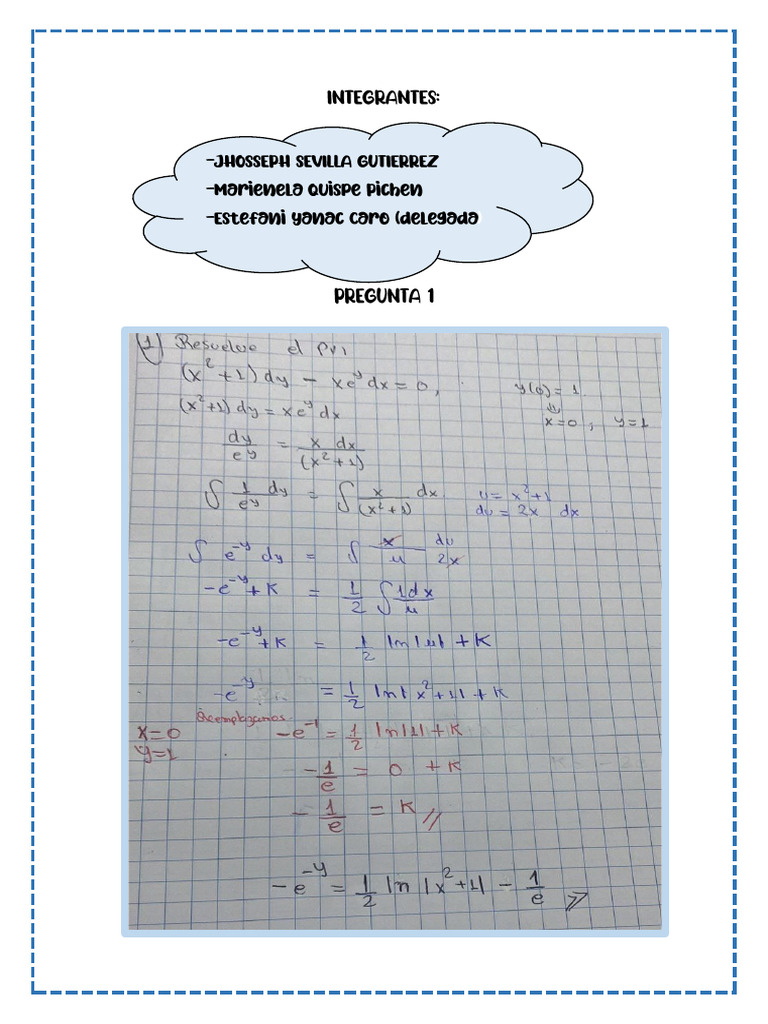 INTEGRANTES:
-JHOSSEPH SEVILLA GUTIERREZ
-Marienela Quispe Pichen
-Estefani Yanac Caro (delegada
PREGUNTA 1
1) Resuelve el PVI
(x² + 1) dy - xe^y dx = 0, y(0) = 1.
(x²+1) dy = xe^y dx x=0, y=1
dy/e^y = x dx/(x²+1)
∫ 1/e^y dy = ∫ x/(x²+1) dx u = x²+1
du = 2x dx
∫ e^-y dy = ∫ x/u du/2x
-e^-y + K = 1/2 ∫ 1dx/u
-e^-y + K = 1/2 ln|u| + K
-e^-y = 1/2 ln|x²+1| + K
Reemplazamos
x=0 -e^-1 = 1/2 ln|1| + K
y=1
-1/e = 0 + K
-1/e = K //
-e^-y = 1/2 ln|x²+1| - 1/e